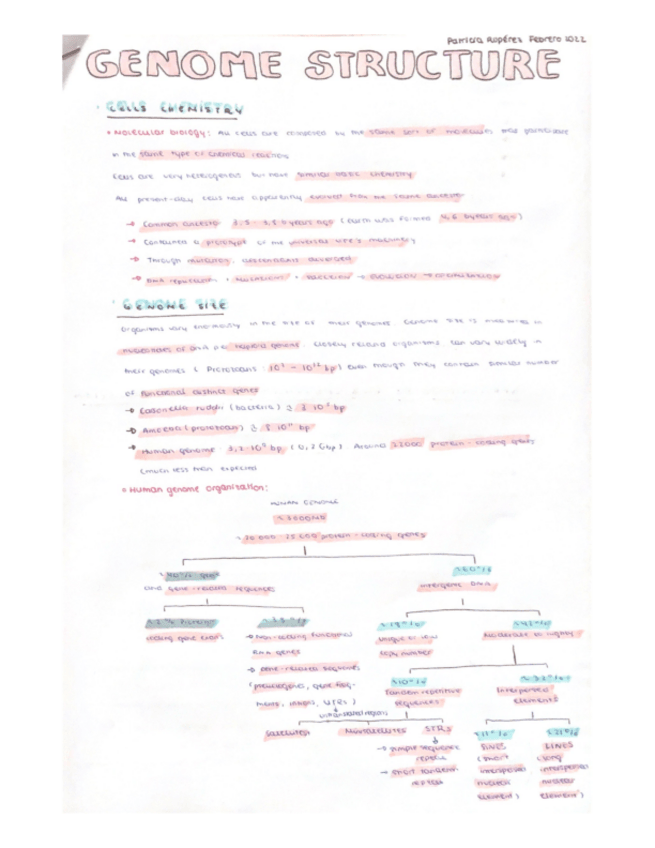 Patricia Ropérez Febrero 1022
GENOME STRUCTURE
· CELLS CHEMISTRY
• Molecular biology: All cells are composed by the same sort of molecules that participate
in the same type of chemical reactions
Cells are very heterogenous but have similar basic chemistry
All present-day cells have apparently evolved from the same ancestor
→ Common ancestor 3,5 - 3,8 byears ago (Earth was formed 4,6 byears ago)
→ Contained a prototype of the universal life's machinery
→ Through mutations, descendants diverged
→ DNA replication + mutations + selection → evolution →
· GENOME SIZE
Organisms vary enormously in the size of their genomes. Genome size is measured in
nucleotides of DNA per haploid genome. Closely related organisms can vary widely in
their genomes (Protozoans: bp) even though they contain similar number
of functional distinct genes
→ (bacteria) bp
→ Amoeba (protozoan) bp
→ Human genome: 3,2·10⁹ bp (3,2 Gbp) Around protein-coding genes
(much less than expected)
• Human genome organization:
HUMAN GENOME
protein-coding genes
genes
and gene-related sequences
Intergenic DNA
coding gene exons
→ Non-coding functional
RNA genes
→ Gene-related sequences
(pseudogenes, gene frag-
ments, introns, UTRs)
untranslated regions
Unique or low
copy number
Moderate or highly
Tandem repetitive
sequences
Interspersed
elements
Satellites
Minisatellites
STRs
→ simple sequence
repeats
→ short tandem
repeats
SINES
(short
interspersed
nuclear
element)
LINES
(long
interspersed
nuclear
element)